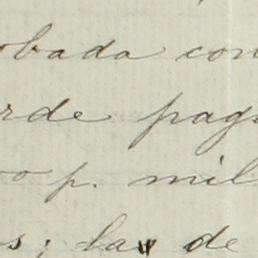 obada con
rde pag
oo p. mil
s; las de